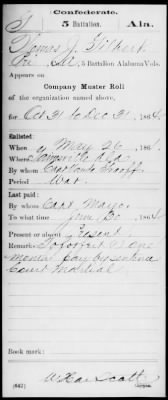 Confederate.
5 Battalion. Ala.
Thomas J. Gilbert
5 Battalion Alabama Vols.
Appears on
Company Muster Roll
of the organization named above,
for Oct 31 to Dec 31, 1864.
Enlisted:
When May 26, 186
Where Ala
By whom Capt
Period War
Last paid:
By whom Capt. Mayo
To what time June 30, 1864.
Present or absent Present
Remarks: To forfeit
pay by sentence
Court Martial
Book mark:
(642) Copyist.